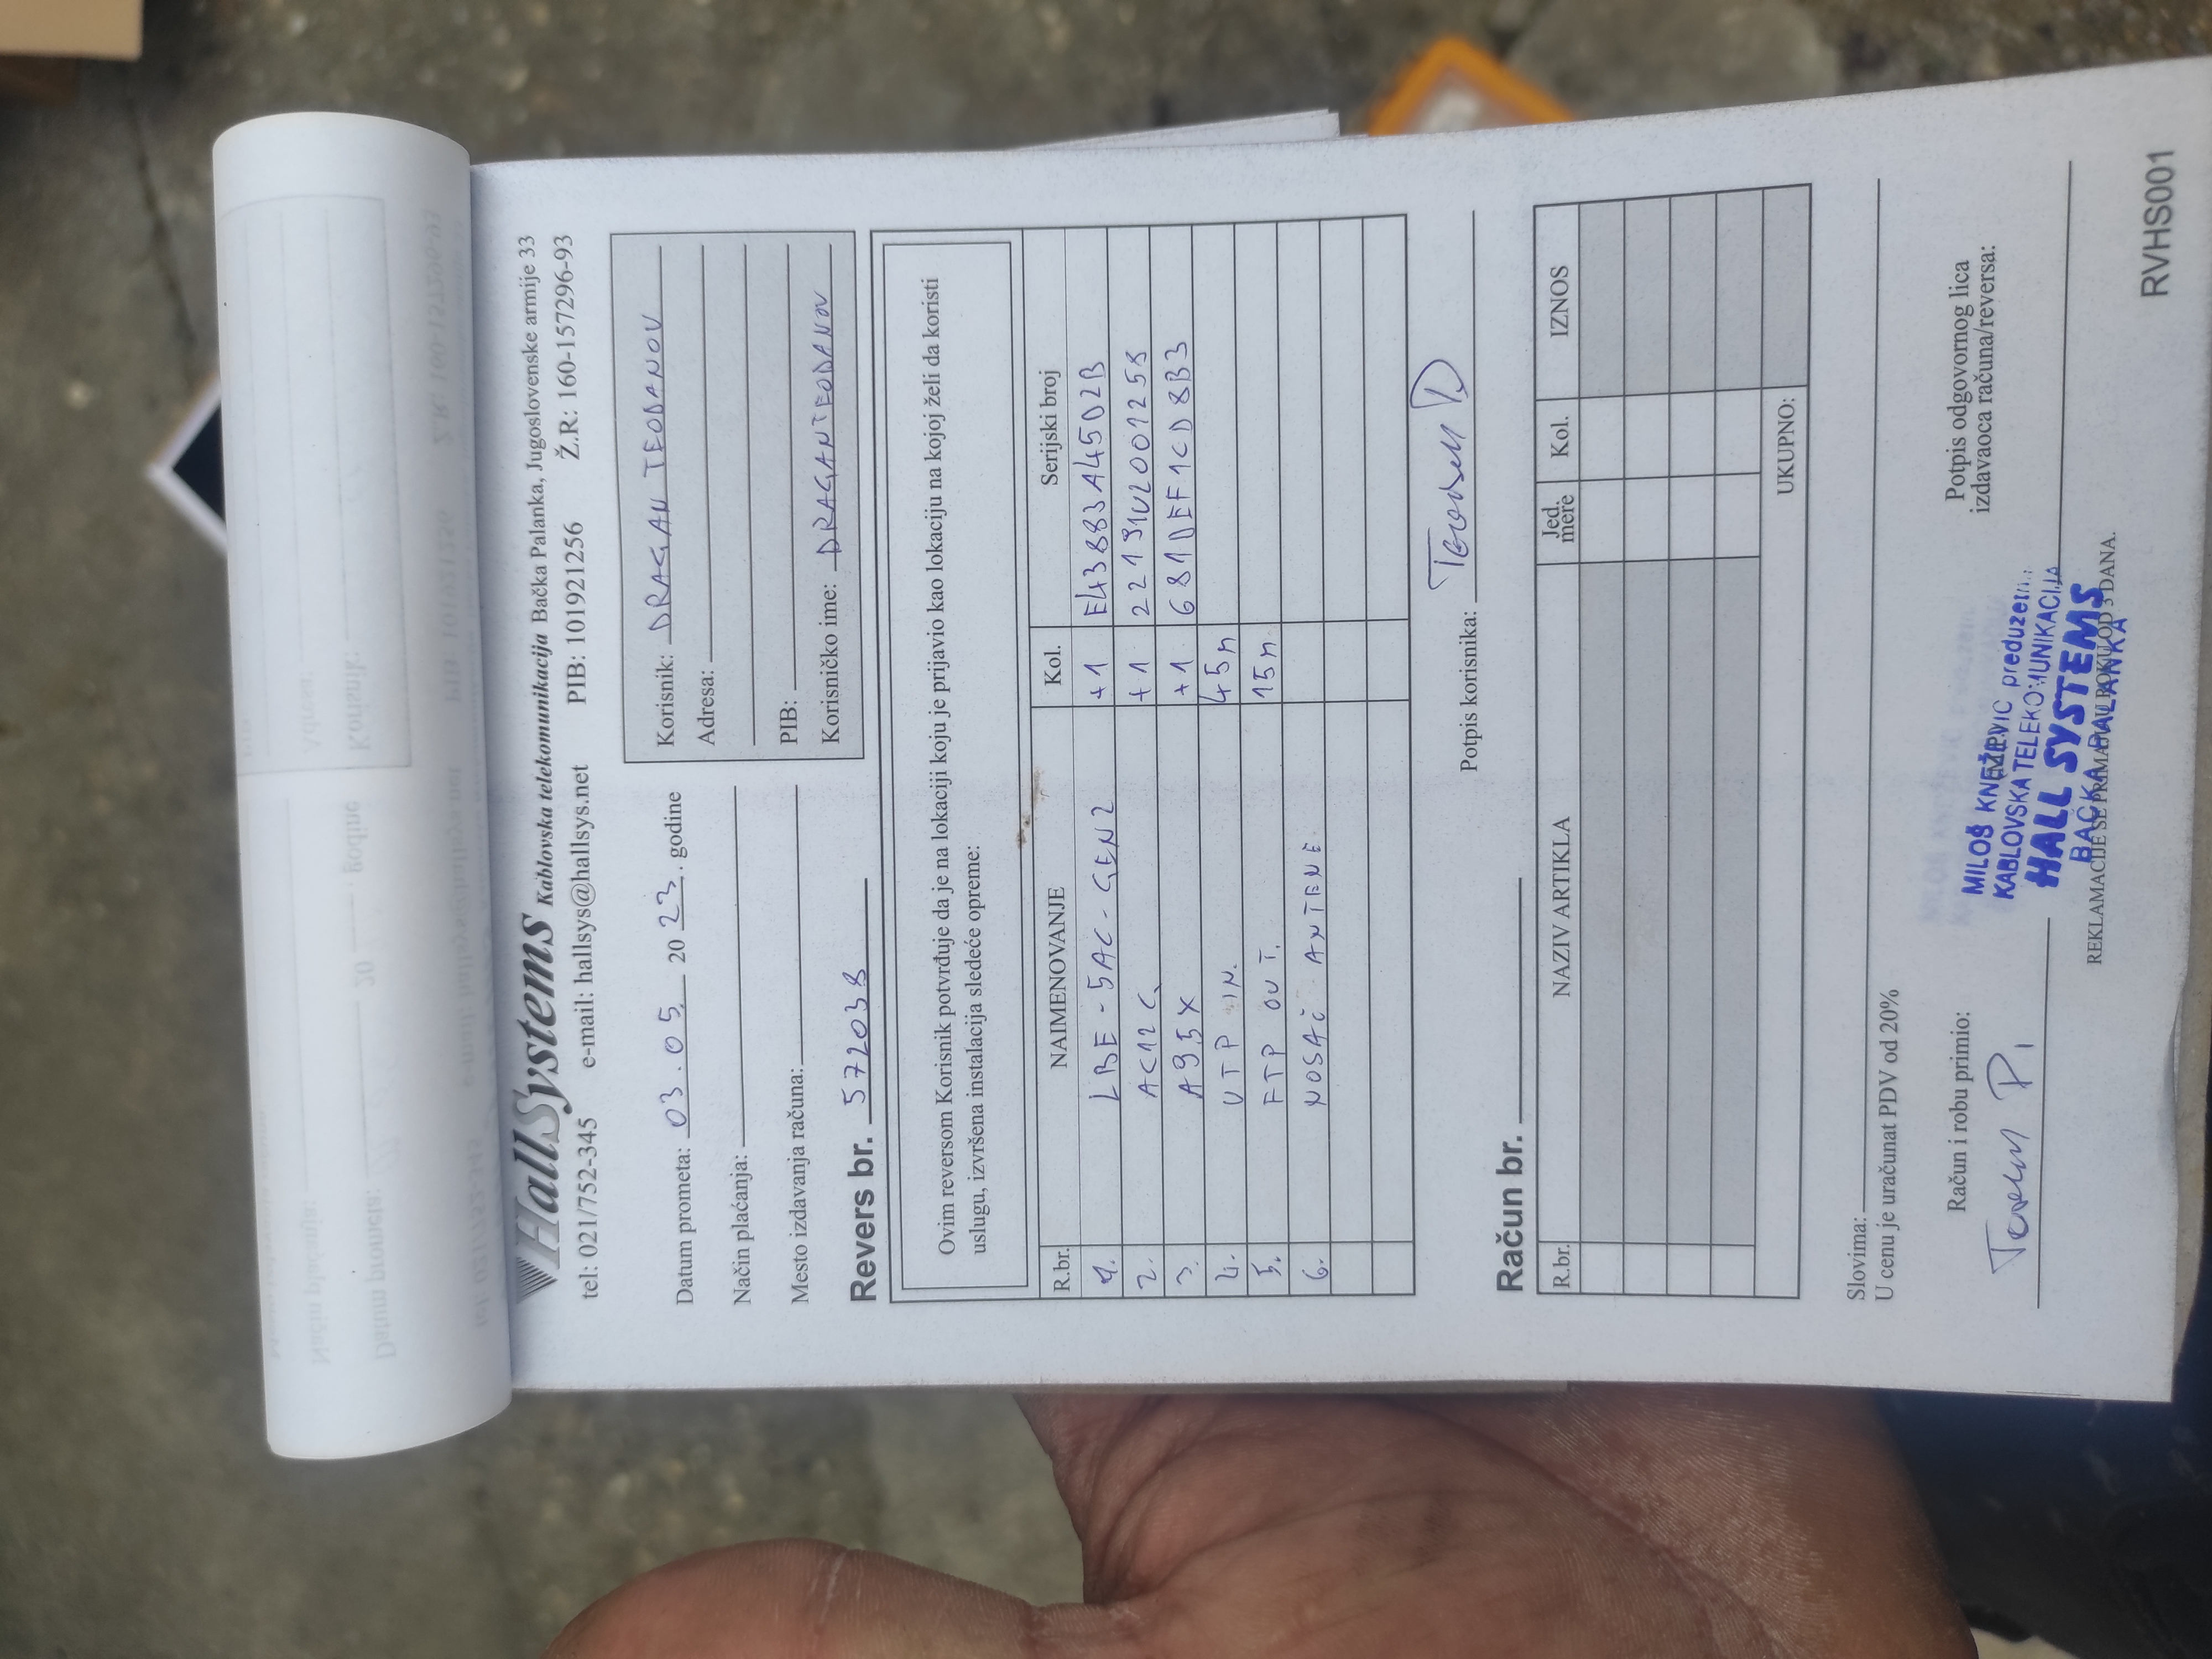 HallSystems Kablovska telekomunikacija Bačka Palanka, Jugoslovenske armije 33
tel: 021/752-345 e-mail: hallsys@hallsys.net PIB: 101921256 Ž.R: 160-157296-93
Datum prometa: 03.05. 2023. godine
Način plaćanja:
Mesto izdavanja računa:
Korisnik: DRAGAN TEODANOV
Adresa:
PIB:
Korisničko ime: DRAGANTEODANOV
Revers br. 572038
Ovim reversom Korisnik potvrđuje da je na lokaciji koju je prijavio kao lokaciju na kojoj želi da koristi
uslugu, izvršena instalacija sledeće opreme:
R.br. NAIMENOVANJE Kol. Serijski broj
1. LBE-5AC-GEN2 +1 E43883A4502B
2. AC12C +1 22191V2001258
3. A95X +1 681DEF1CD8B3
4. UTP IN. 45m
5. FTP OUT. 15m
6. NOSAČ ANTENE
Potpis korisnika:
Račun br.
R.br. NAZIV ARTIKLA Jed. mere Kol. IZNOS
UKUPNO:
Slovima:
U cenu je uračunat PDV od 20%
Račun i robu primio:
Potpis odgovornog lica
izdavaoca računa/reversa:
MILOŠ KNEŽEVIĆ
KABLOVSKA TELEKOMUNIKACIJA
HALL SYSTEMS
BAČKA PALANKA
REKLAMACIJE SE PRIMAJU U ROKU OD 3 DANA.
RVHS001